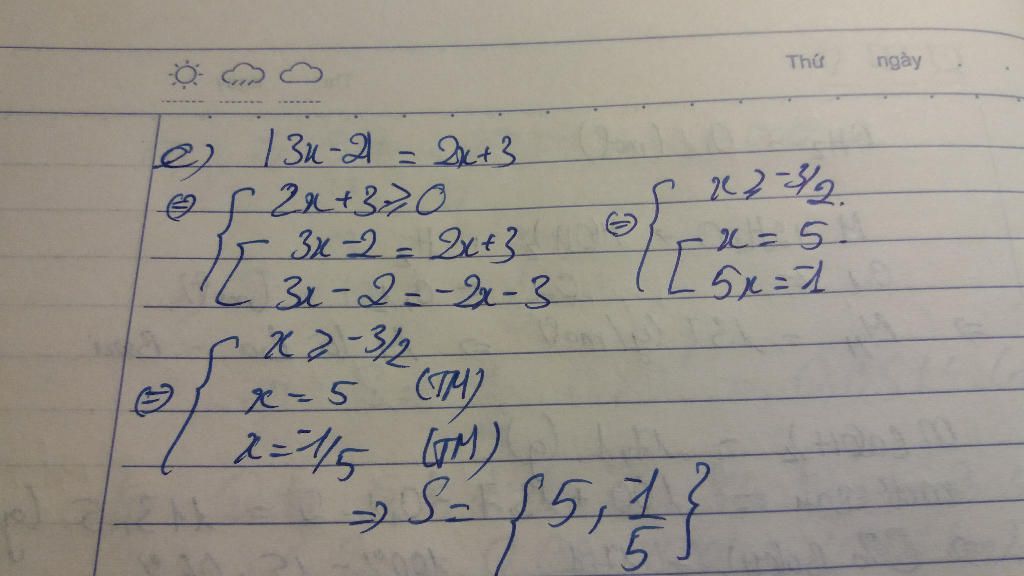 Thứ ngày
e) |3x-2| = 2x+3
⇔ { 2x+3 ⩾ 0
[ 3x-2 = 2x+3
3x-2 = -2x-3
⇔ { x ⩾ -3/2.
[ x = 5.
5x = -1
⇔ { x ⩾ -3/2
x = 5 (TM)
x = -1/5 (TM)
⇒ S = { 5, -1/5 }